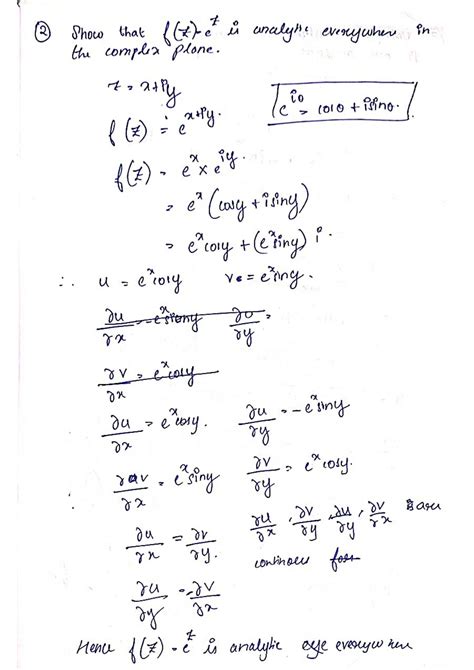 ② Show that f(z) = e^z is analytic everywhere in
the complex plane.
z = x+iy
e^{iθ} = cosθ + isinθ.
f(z) = e^{x+iy}.
f(z) = e^x × e^{iy}.
= e^x (cosy + isiny)
= e^x cosy + (e^x siny) i.
∴ u = e^x cosy v = e^x siny.
∂u/∂x = -e^x siny ∂u/∂y =
∂v/∂x = e^x cosy
∂u/∂x = e^x cosy. ∂u/∂y = -e^x siny
∂v/∂x = e^x siny ∂v/∂y = e^x cosy.
∴ ∂u/∂x = ∂v/∂y. ∂u/∂x, ∂v/∂y, ∂u/∂y, ∂v/∂x are
continous
∂u/∂y = -∂v/∂x
Hence f(z) = e^z is analytic everywhere